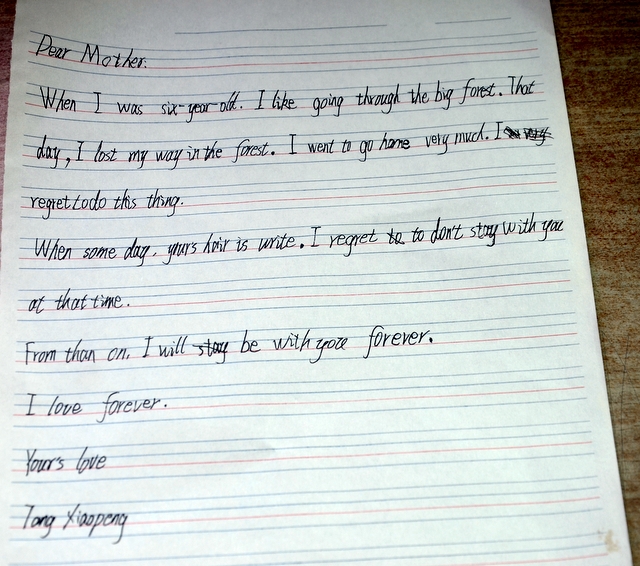 Dear Mother:
When I was six-year-old. I like going through the big forest. That
day, I lost my way in the forest. I went to go home very much. I
regret to do this thing.
When some day, yours hair is write. I regret to don't stay with you
at that time.
From than on, I will be with you forever.
I love forever.
Yours love
Tang Xiaopeng